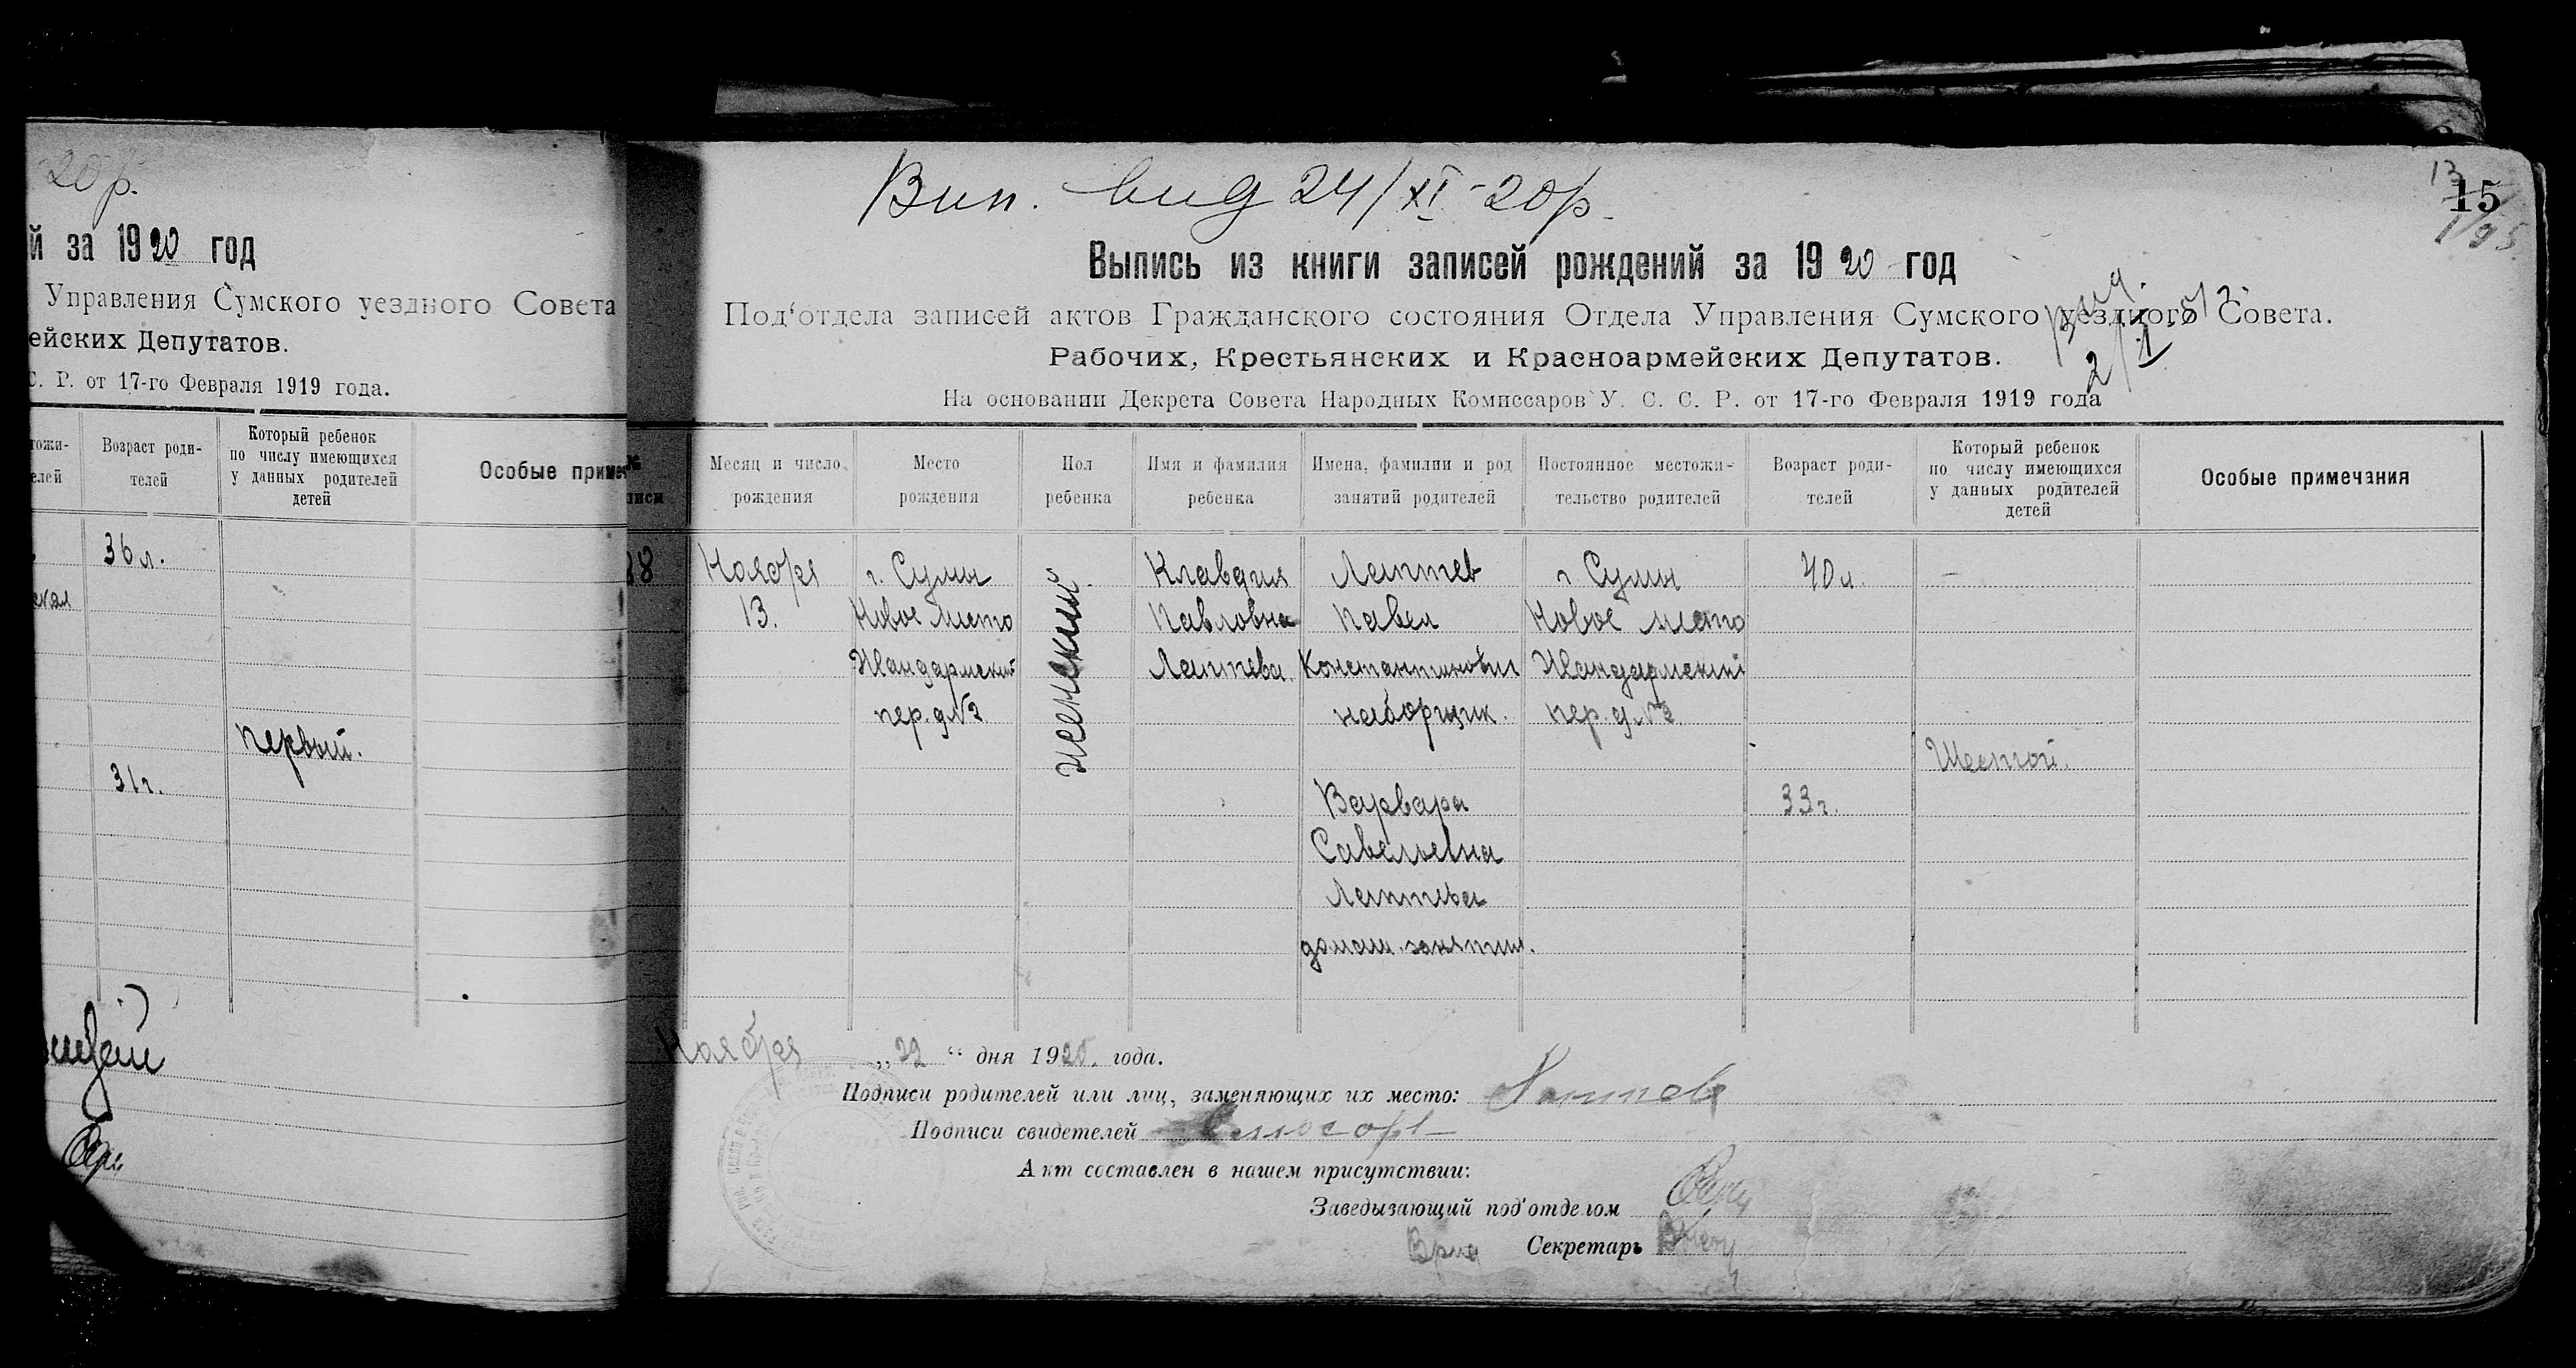 20 р.
й за 1920 год
Управления Сумского уездного Совета
ейских Депутатов.
С. Р. от 17-го Февраля 1919 года.
Возраст роди-
телей
Который ребенок
по числу имеющихся
у данных родителей
детей
Особые приме
36 л.
ская
первый.
31 г.
Вип. вид 24/XI-20 р.
13
15
Выпись из книги записей рождений за 1920 год
Под'отдела записей актов Гражданского состояния Отдела Управления Сумского уездного Совета.
Рабочих, Крестьянских и Красноармейских Депутатов.
На основании Декрета Совета Народных Комиссаров У. С. С. Р. от 17-го Февраля 1919 года
Месяц и число
рождения
Место
рождения
Пол
ребенка
Имя и фамилия
ребенка
Имена, фамилии и род
занятий родителей
Постоянное местожи-
тельство родителей
Возраст роди-
телей
Который ребенок
по числу имеющихся
у данных родителей
детей
Особые примечания
Ноября
13.
г. Сумы
Новое место
Жандармский
пер. д № 2
женский
Клавдия
Павловна
Лаптева.
Лаптев
Павел
Константинович
наборщик.
Варвара
Савельевна
Лаптева
домаш. занятия.
г. Сумы
Новое место
Жандармский
пер. д. № 2.
40 л.
33 г.
Шестой.
Ноября „22“ дня 1920. года.
Подписи родителей или лиц, заменяющих их место: Лаптев
Подписи свидетелей
Акт составлен в нашем присутствии:
Заведывающий под'отделом
Врид Секретарь